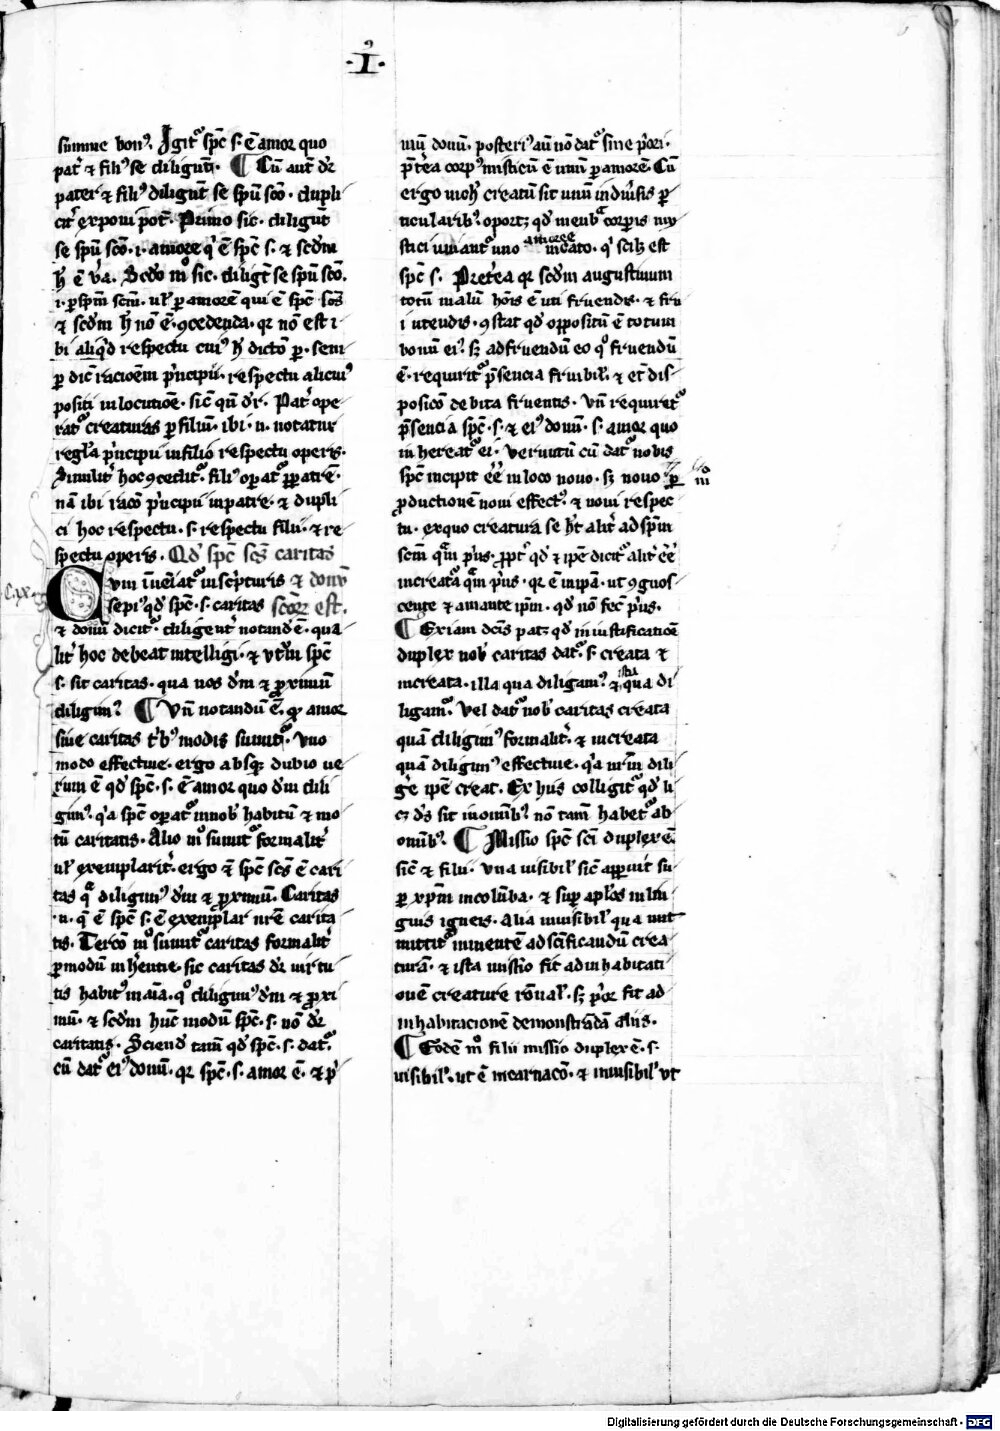 ·I·
summe bonꝰ. Igit᷑ spc̄ s. ē amor quo
pat̓ ⁊ filiꝰ se diligūt. ¶ Cū aut̄ dr̄
pater ⁊ filiꝰ diligūt se spū sc̄o. dupli
cit̓ exponi pōt. Primo sic. diligūt
se spū sc̄o .i. amore q̇ ē spc̄ s. ⁊ scd̄m
h̄ ē v̓a. Scd̄o m̊ sic. diligūt se spū sc̄o
.i. ꝑ spm̄ scm̄. ul̓ ꝑ amorē qui ē spc̄ scs̄
⁊ scd̄m h̄ nō ē ꝯcedenda. qꝛ nō est i
bi aliq̇d respectu cuiꝰ h̄ dictō ꝑ. sem
ꝑ dic̄ racioēm p̓ncipii. respectu alicuiꝰ
positi in locutiōe. sic̄ qn̄ dr̄. Pat̓ ope
rat᷑ creaturas ꝑ filiū. ibi .n. notatur
regl̓a p̓ncipii in filio respectu operis.
Similit̓ hoc ꝯcedit᷑. filiꝰ oꝑat᷑ ꝓpatrē.
nā ibi racō p̓ncipii in patre. ⁊ dupli
ci hoc respectu. s. respectu filii. ⁊ re
spectu operis. Qd̓ spc̄ scs̄ caritas
Cum inueniat᷑ in scripturis ⁊ donū
sepiꝰ qd̓ spc̄ .s. caritas scōꝝ est.
⁊ donū dicit᷑. diligent̓ notand̄ ē. qua
lit̓ hoc debeat intelligi. ⁊ vtꝝ spc̄
s. sit caritas. qua nos dm̄ ⁊ ꝓximū
diligimꝰ ¶ Vn̄ notandū ē. ꝙ amor
siue caritas t̓bꝰ modis sumit᷑. Vno
modo effectiue. ergo absqꝫ dubio ue
rum ē qd̓ spc̄ .s. ē amor quo dm̄ dili
gimꝰ. q̓a spc̄ oꝑat᷑ in nob̓ habitū ⁊ mo
tū caritatis. Alio m̊ sumit᷑ formalit̓
ul̓ exemplarit̓. ergo ⁊ spc̄ scs̄ ē cari
tas q̄ diligimꝰ dm̄ ⁊ ꝓximū. Caritas
.n. q̄ ē spc̄ s. ē exemplar nr̄e carita
tis. Tercō m̊ sumit᷑ caritas formalit̓
ꝑ modū inh̓entie. sic caritas dr̄ uirtu
tis habitꝰ in aīa. q̊ diligimꝰ dm̄ ⁊ ꝓxi
mū. ⁊ scd̄m hūc modū spc̄ .s. nō dr̄
caritatis. Sciend̄ tam̄ qd̓ spc̄ .s. dat᷑.
cū dat᷑ eiꝰ donū. qꝛ spc̄ .s. amor ē. ⁊ p̓
mū donū. posteriꝰ aū nō dat᷑ sine p̓ori.
p̄t̓ea corpꝰ misticū ē unū ꝑ amorē. Cū
ergo
creatū sit unū in diu̓sis ꝑ
ticularibꝰ. oportꝫ qd̓ menb̓a corporis my
stici uniant᷑ uno amore increato. q̇ scilꝫ est
spc̄ s. Pret̓ea qꝛ scd̄m augustinum
totū malū hoīs ē uti fruendis. ⁊ fru
i utendis. ꝯstat qd̓ oppositū ē totum
bonū eiꝰ. sꝫ ad fruendū eo q̊ fruendū
ē. requirit᷑ p̄sencia fruibil̓. ⁊ et̄ dis
posicō debita fruentis. Vn̄ requiret᷑
p̄sencia spc̄ .s. ⁊ eiꝰ donū .s. amor quo
inhereat᷑ ei. Verūtn̄ cū dat᷑ nobis
spc̄ incipit ēe in loco nouo. sꝫ nouo m̊ ꝑ
ꝓductionē noui effectꝰ. ⁊ noui respec
tu. ex quo creatura se h̄t alit̓ ad spm̄
scm̄ q̄m p̓us. ꝓpt̓ qd̓ ⁊ ip̄e dicit᷑ alit̓ ēe
increata᷑ q̄m p̓us. qꝛ ē in ip̄a. ut ꝯgnos
cente ⁊ amante ip̄m. qd̓ nō fec̄ p̓us.
¶ Ex iam dc̄is patꝫ qd̓ in iustificatiōe
duplex nob̓ caritas dat᷑. s. creata ⁊
increata. illa qua diligamꝰ ⁊ ista qua di
ligam᷑. Vel dat᷑ nob̓ caritas creata
quā diligimꝰ formalit̓. ⁊ increata
quā diligimꝰ effectiue. q̓a nr̄m dili
g̓e ip̄e creat. Ex hiis colligit᷑ qd̓ li
cꝫ d̓s sit in oīmbꝰ. nō tam̄ habet᷑ ab
omībꝰ. ¶ Missio spc̄ sc̄i duplex ē.
sic̄ ⁊ filii. Vna uisibil̓ sic̄ apparuit su
ꝑ xp̄m in colūba. ⁊ suꝑ apl̓os in lin
guis igneis. Alia inuisibil̓ qua mit
mittit᷑ in mentē ad scīficandū crea
turā. ⁊ ista missio fit ad inhabitati
onē creature rōnal̓. sꝫ p̓or fit ad
inhabitacionē demonstrādā aliis.
¶ Eodē m̊ filii missio duplex ē. s.
uisibil̓. ut ē incarnacō. ⁊ inuisibil̓ vt
Digitalisierung gefördert durch die Deutsche Forschungsgemeinschaft - DFG